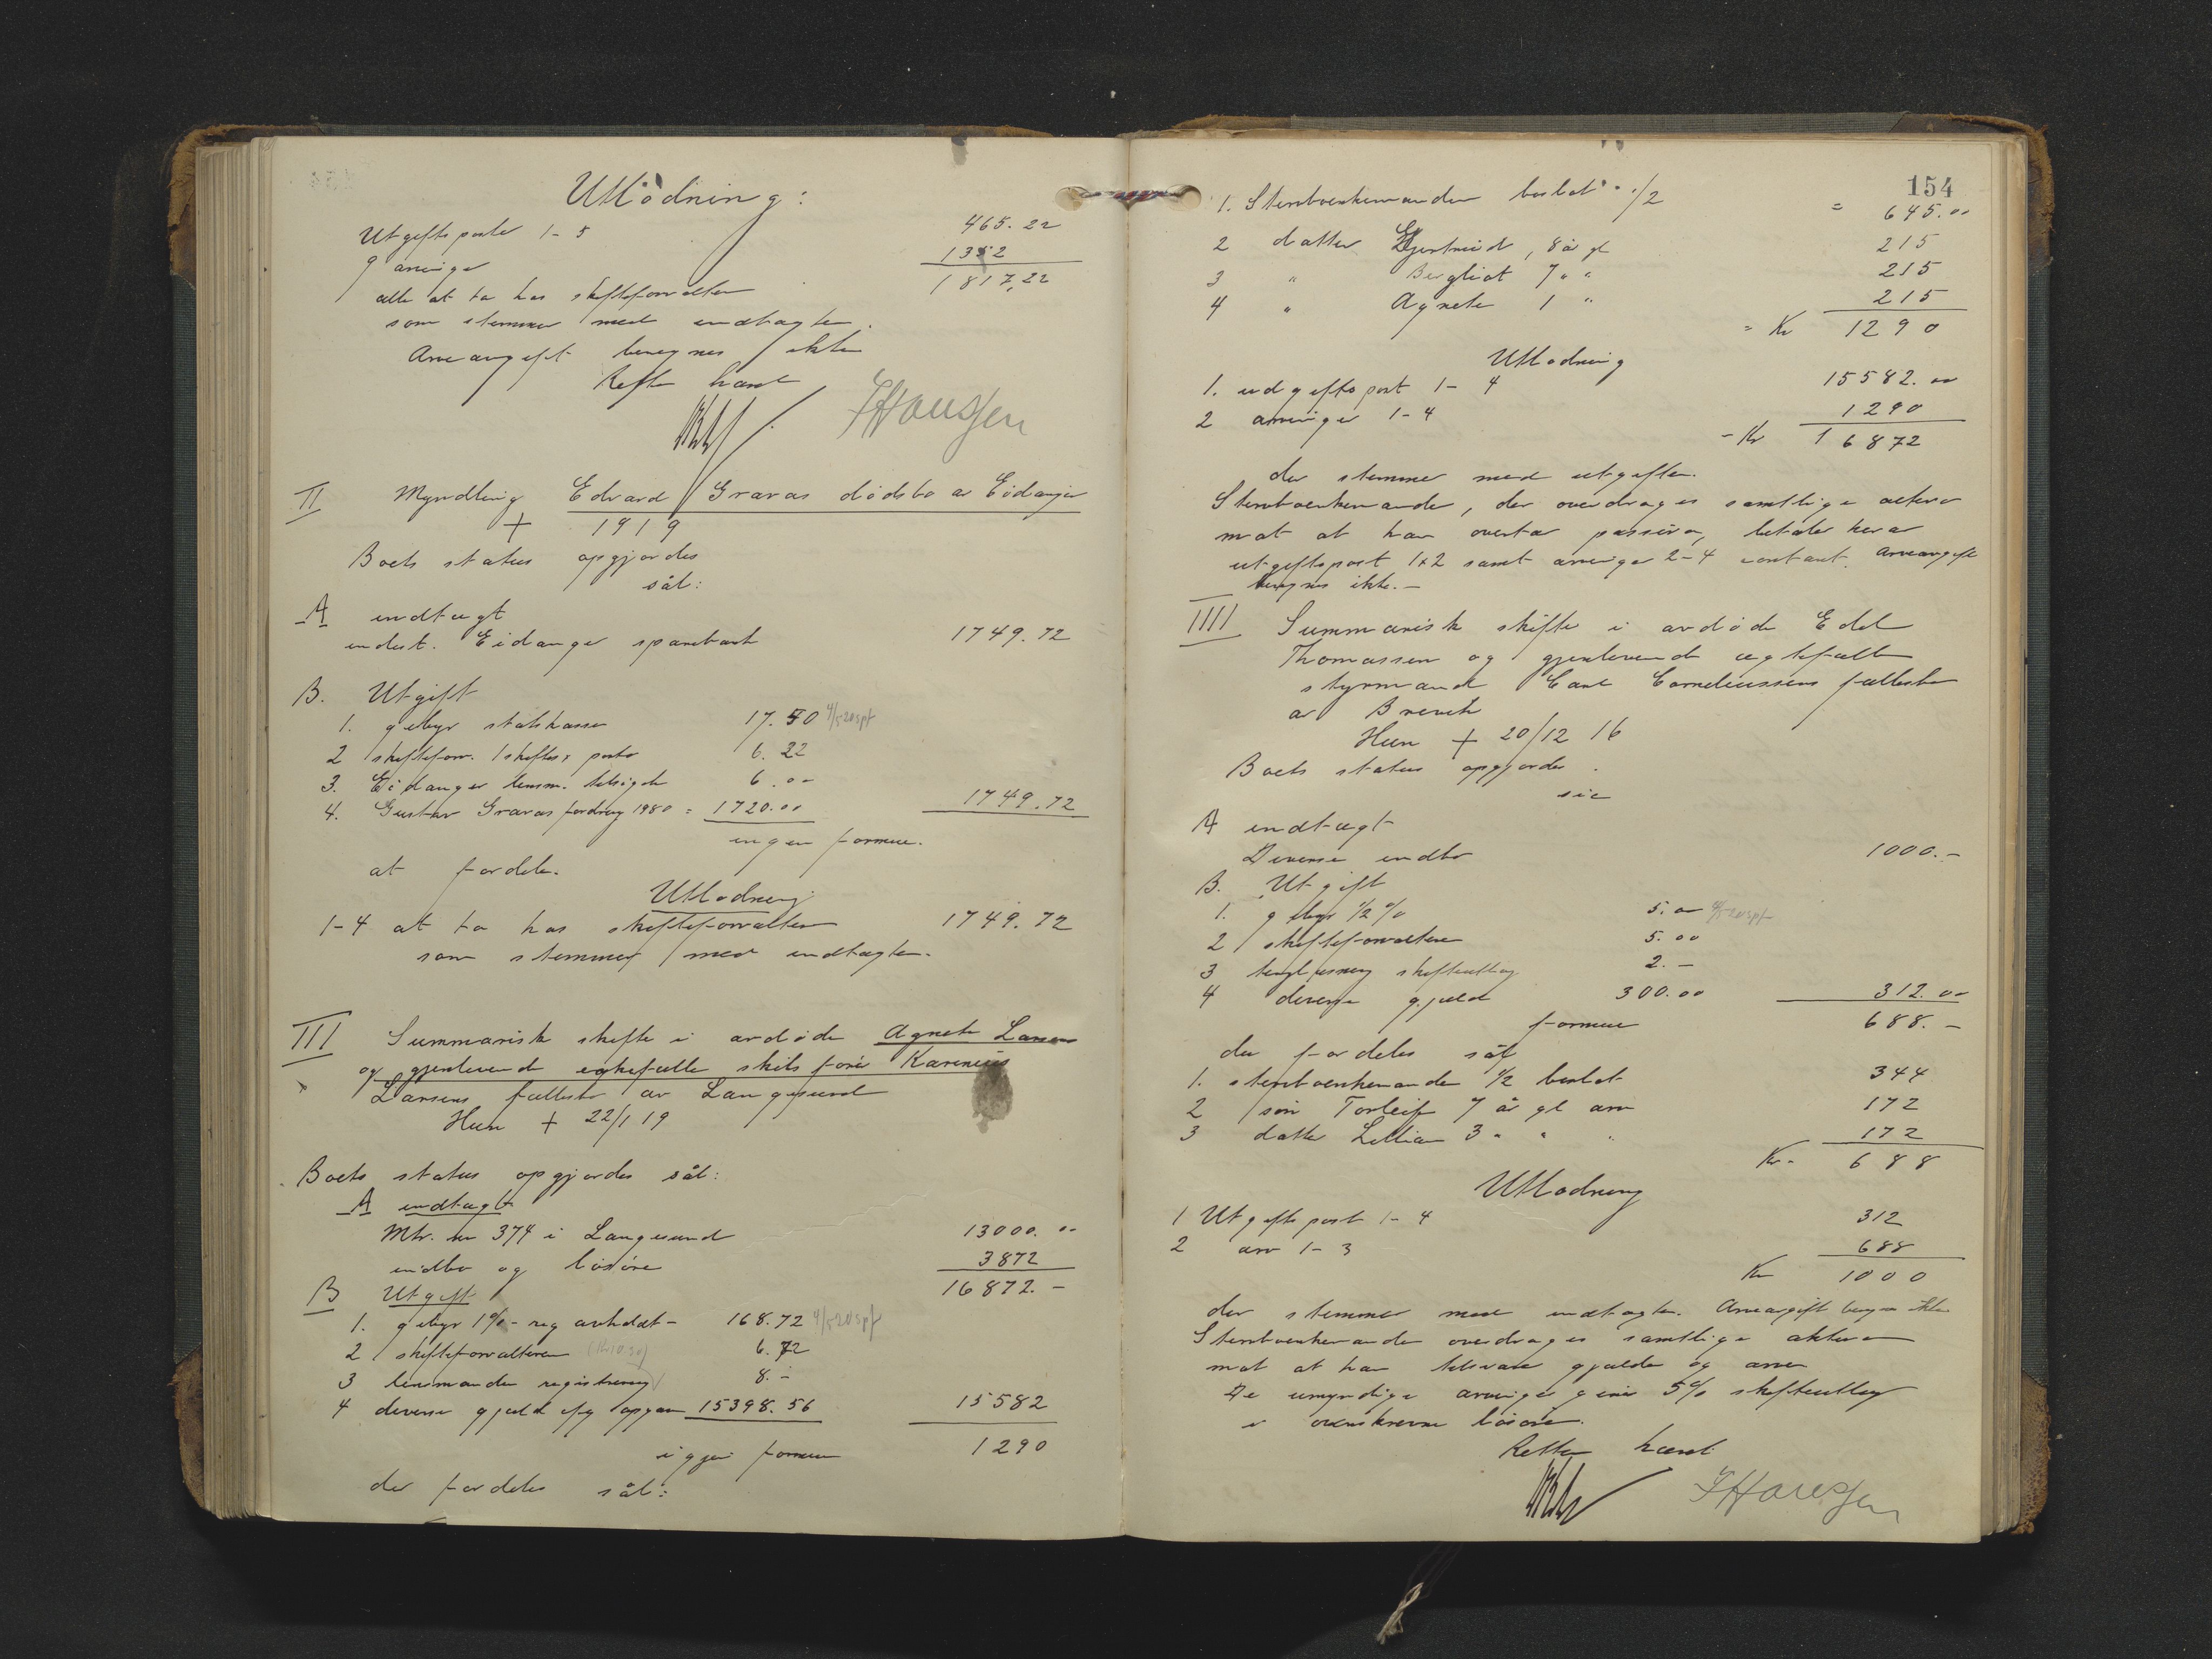 Utlodning:
Utgiftsposter 1-5 465.22
9 arvinger 1352
1817,22
alle at ta hos skifteforvalteren
som stemmer med indtægten.
Arveavgift beregnes ikke
Retten hævet
JHHansen
II Myndling Edvard Gravas dødsbo av Eidanger
+ 1919
Boets status opgjordes
sål:
A indtægt
indest. Eidanger sparebank 1749.72
B. Utgift
1. gebyr statskassen 17.50 4/5 20 spf
2 skifteforv. skiftes. porto 6.22
3. Eidanger lensm. tilsigelse 6.00
4. Gustav Gravas fordring 1980 = 1720.00 1749.72
ingen formue.
at fordele.
Utlodning
1-4 at ta hos skifteforvalteren 1749.72
som stemmer med indtægten.
III Summarisk skifte i avdøde Agnete Larsen
og gjenlevende egtefælle skibsfører Karenius
Larsens fællesbo av Langesund
Hun + 22/1 19
Boets status opgjordes sål:
A indtægt
Mtr. nr 374 i Langesund 13000.00
indbo og løsøre 3872
B Utgift 16872.-
1. gebyr 1% - reg avholdt - 168.72 4/5 20 spf
2 skifteforvalteren 6.72
3 lensmanden registrering 8.-
4 diverse gjæld ifg opgave 15398.56 15582
igjen formue 1290
der fordeles sål:
154
1. Sterboenkemanden boslod 1/2 = 645.00
2 datter Gjertrud, 8 år gl 215
3 " Bergliot 7 " " 215
4 " Agnete 1 " 215
= Kr 1290
Utlodning
1. udgiftspost 1-4 15582.00
2 arvinger 1-4 1290
- Kr 16872
der stemmer med utgiften.
Sterboenkemanden, der overdrages samtlige aktiva
mot at han overtar passiva, betaler herav
utgiftspost 1+2 samt arvinger 2-4 contant. Arveavgift
beregnes ikke.-
IIII Summarisk skifte i avdøde Edel
Thomassen og gjenlevende ægtefælle
styrmand Carl Corneliussens fællesbo
av Brevik
Hun + 20/12 16
Boets status opgjordes
sic
A indtægt
Diverse indbo 1000.-
B. Utgift
1. gebyr 1/2 % 5.00 4/5 20 spf
2 skifteforvalteren 5.00
3 tinglysning skifteutlæg 2.-
4 diverse gjæld 300.00 312.00
formue 688.-
der fordeles sål
1. sterboenkemanden 1/2 boslod 344
2 søn Torleif 7 år gl arv 172
3 datter Lillian 3 " " " 172
Kr- 688
Utlodning
1 Utgiftspost 1-4 312
2 arv 1-3 688
Kr 1000
der stemmer med indtægten. Arveavgift beregnes ikke
Sterboenkemanden overdrages samtlige aktiva
mot at han tilsvarer gjælden og arven
De umyndige arvinger gives 5% skifteutlæg
i ovenskrevne løsøre.
Retten hævet
JHHansen